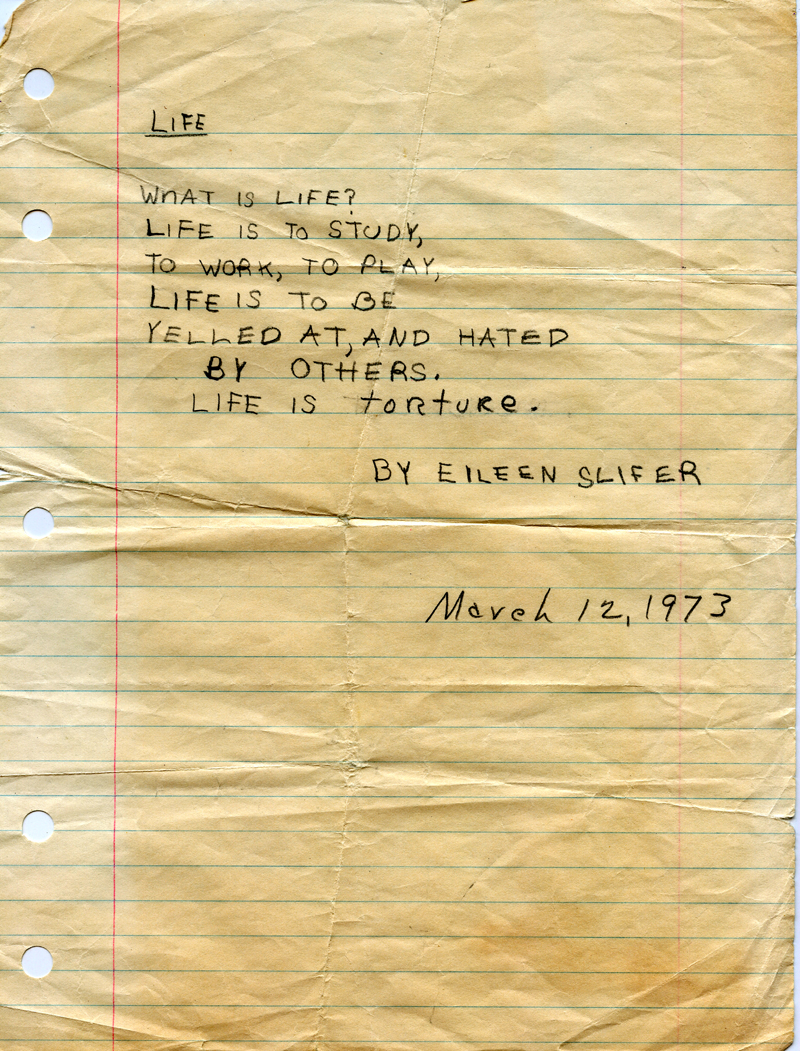 LIFE
WHAT IS LIFE?
LIFE IS TO STUDY,
TO WORK, TO PLAY,
LIFE IS TO BE
YELLED AT, AND HATED
BY OTHERS.
LIFE IS torture.
BY EILEEN SLIFER
March 12, 1973